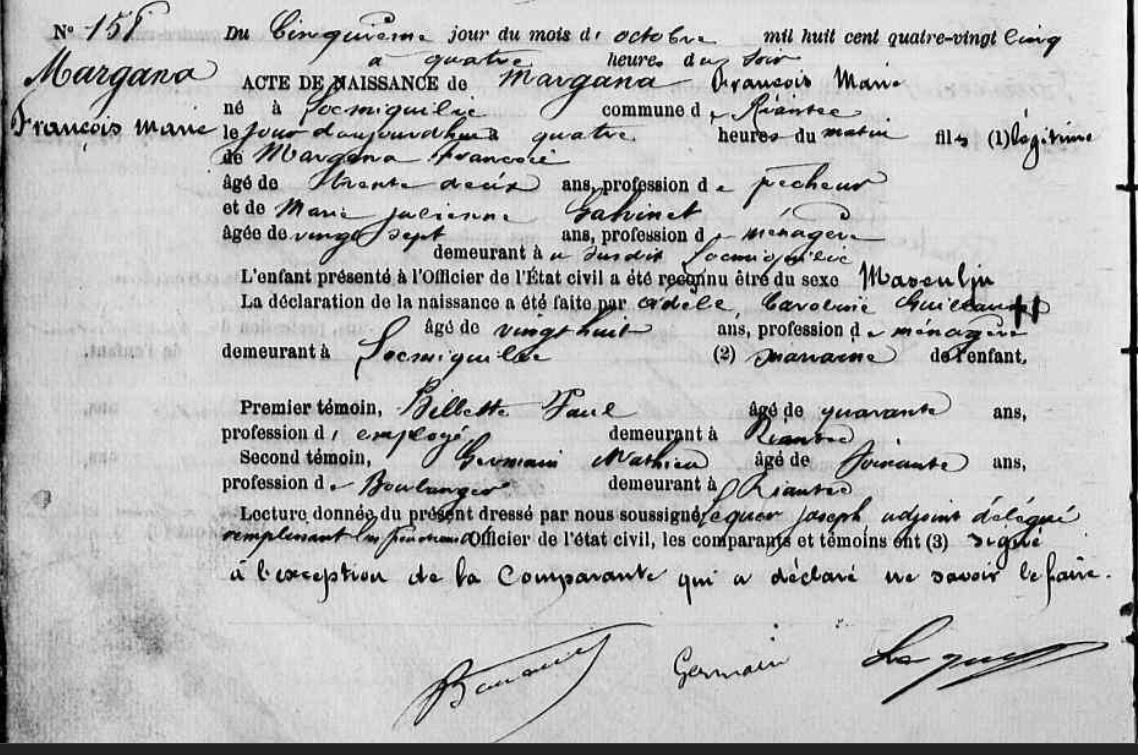 N° 151
Margana
François Marie
Du Cinquième jour du mois d' octobre mil huit cent quatre-vingt Cinq
à quatre heures du soir
ACTE DE NAISSANCE de Margana François Marie
né à Locmiquélic commune de Riantec
le jour d'aujourd'hui à quatre heures du matin fils (1) légitime
de Margana François
âgé de trente deux ans, profession de pêcheur
et de Marie julienne
âgée de vingt sept ans, profession de ménagère
demeurant à u susdit Locmiquélic
L'enfant présenté à l'Officier de l'État civil a été reconnu être du sexe Masculin
La déclaration de la naissance a été faite par Adèle, Caroline
âgé de vingt huit ans, profession de ménagère
demeurant à Locmiquélic (2) marraine de l'enfant,
Premier témoin, Paul âgé de quarante ans,
profession d' employé demeurant à Riantec
Second témoin, Germain Mathieu âgé de soixante ans,
profession de Boulanger demeurant à Riantec
Lecture donnée du présent dressé par nous soussigné Lequer joseph adjoint délégué
remplissant les fonctions d'Officier de l'état civil, les comparants et témoins ont (3) signé
à l'exception de la Comparante qui a déclaré ne savoir le faire.
Germain